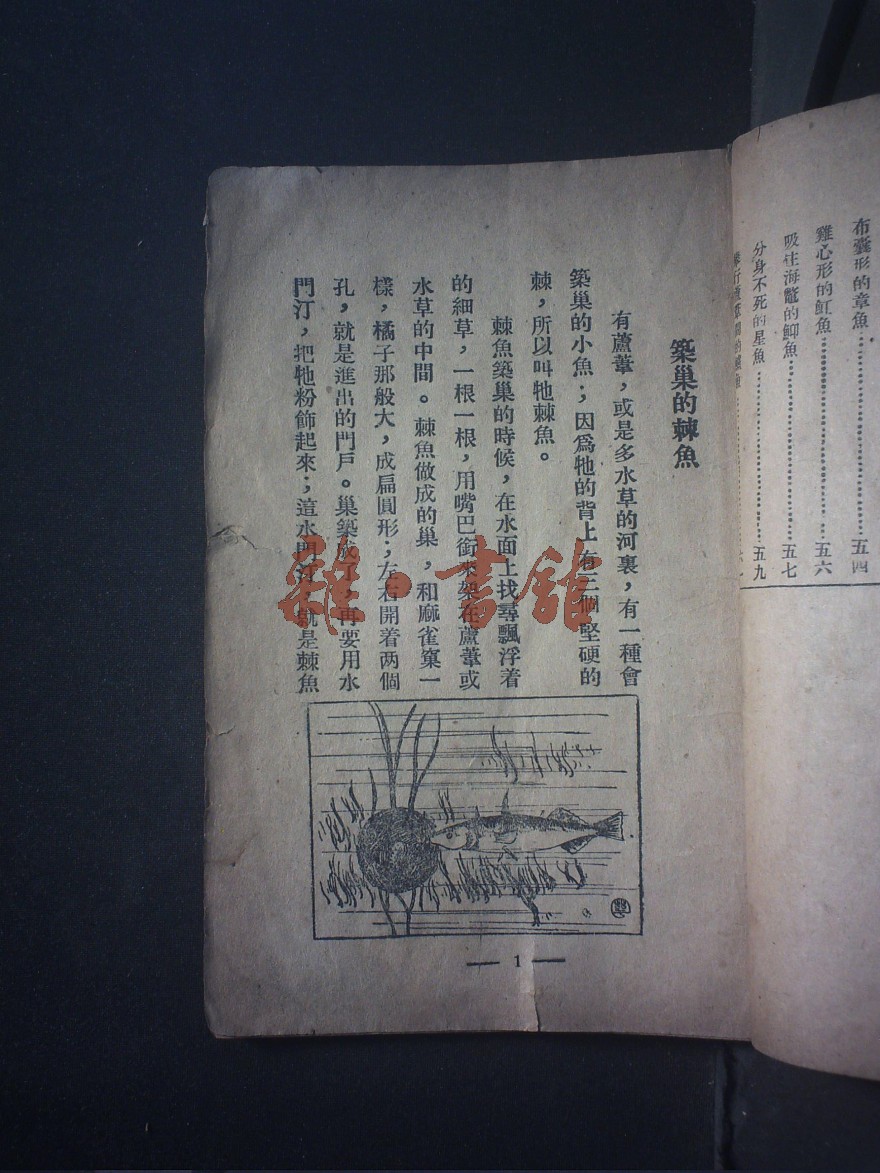 布囊形的章魚⋯⋯⋯⋯五四
雞心形的魟魚⋯⋯⋯⋯五六
吸住海鼈的鮣魚⋯⋯⋯⋯五七
分身不死的星魚⋯⋯⋯⋯五九
築巢的棘魚
有蘆葦，或是多水草的河裏，有一種會
築巢的小魚；因爲牠的背上有三個堅硬的
棘，所以叫牠棘魚。
棘魚築巢的時候，在水面上找尋飄浮着
的細草，一根一根，用嘴巴銜來架在蘆葦或
水草的中間。棘魚做成的巢，和麻雀窠一
樣，橘子那般大，成扁圓形；左右開着两個
孔，就是進出的門戶。巢築成了，再要用水
門汀，把牠粉飾起來；這水門汀，就是棘魚
— 1 —
雜·書館